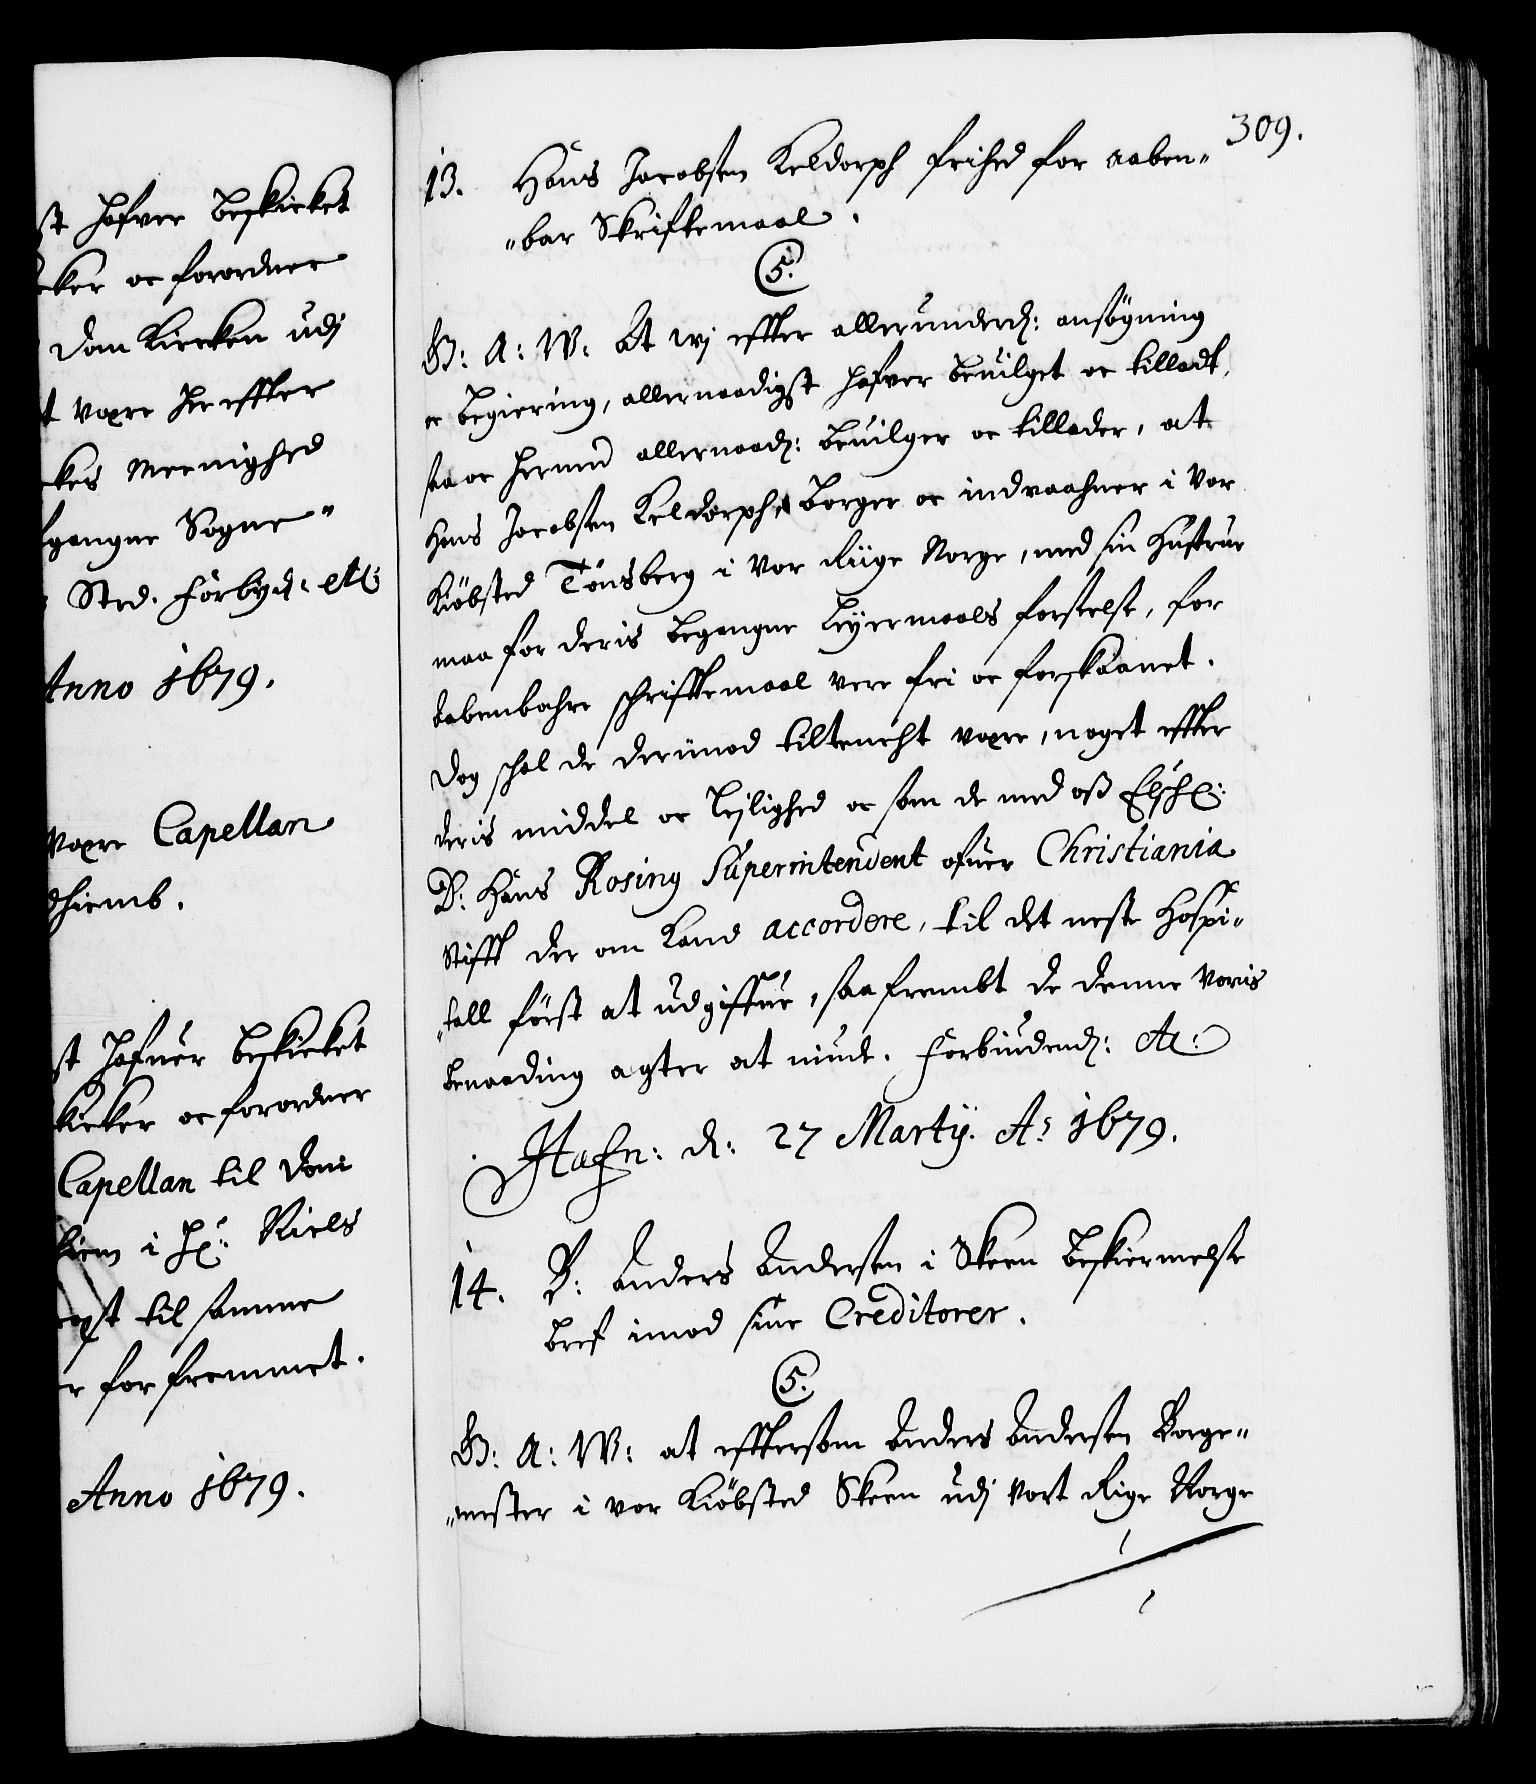 st hafver beskicket
cker oc forordner
Dom Kircken udj
t være her effter
kes Meenighed
fgangne Sogne-
Sted. Forbyd: etc:
Anno 1679.
være Capellan
dhiemb.
st hafuer beskicket
skicker oc forordner
Capellan til Dom
hiem i Hr: Niels
til samme
r forfremmet.
Anno 1679.
309.
13. Hans Jacobsen Keldorph frihed for aaben-
-bar Skriftemaal.
S.
G: A: W: At wj effter allerunderd: ansøgning
oc begiering, allernaadigst hafver bevilget oc tilladt,
saa oc hermed allernaad: bevilger oc tillader, at
Hans Jacobsen Keldorph, borger oc indvaahner i vor
Kiøbsted Tønsberg i vor Riige Norge, med sin Hustrue
maa for deris begangne Leyermaals forseelse, for
aabenbahre schrifftemaal vere fri oc forskaanet.
Dog schal de derimod tiltencht være, noget effter
deris middel oc Leylighed oc som de med oss Elschel:
D: Hans Rosing Superintendent ofuer Christiania
Stifft der om kand accordere, til det neste Hospi-
-tall først at udgiffue, saafrembt de denne voris
benaading agter at niude. Forbiudend: etc:
Hafn: d: 27 Martij. Ao 1679.
14. B: Anders Andersen i Skeen beskiermelse
bref imod sine Creditorer.
S.
G: A: W: at efftersom Anders Andersen Borge-
-mester i vor Kiøbsted Skeen udj vort Rige Norge